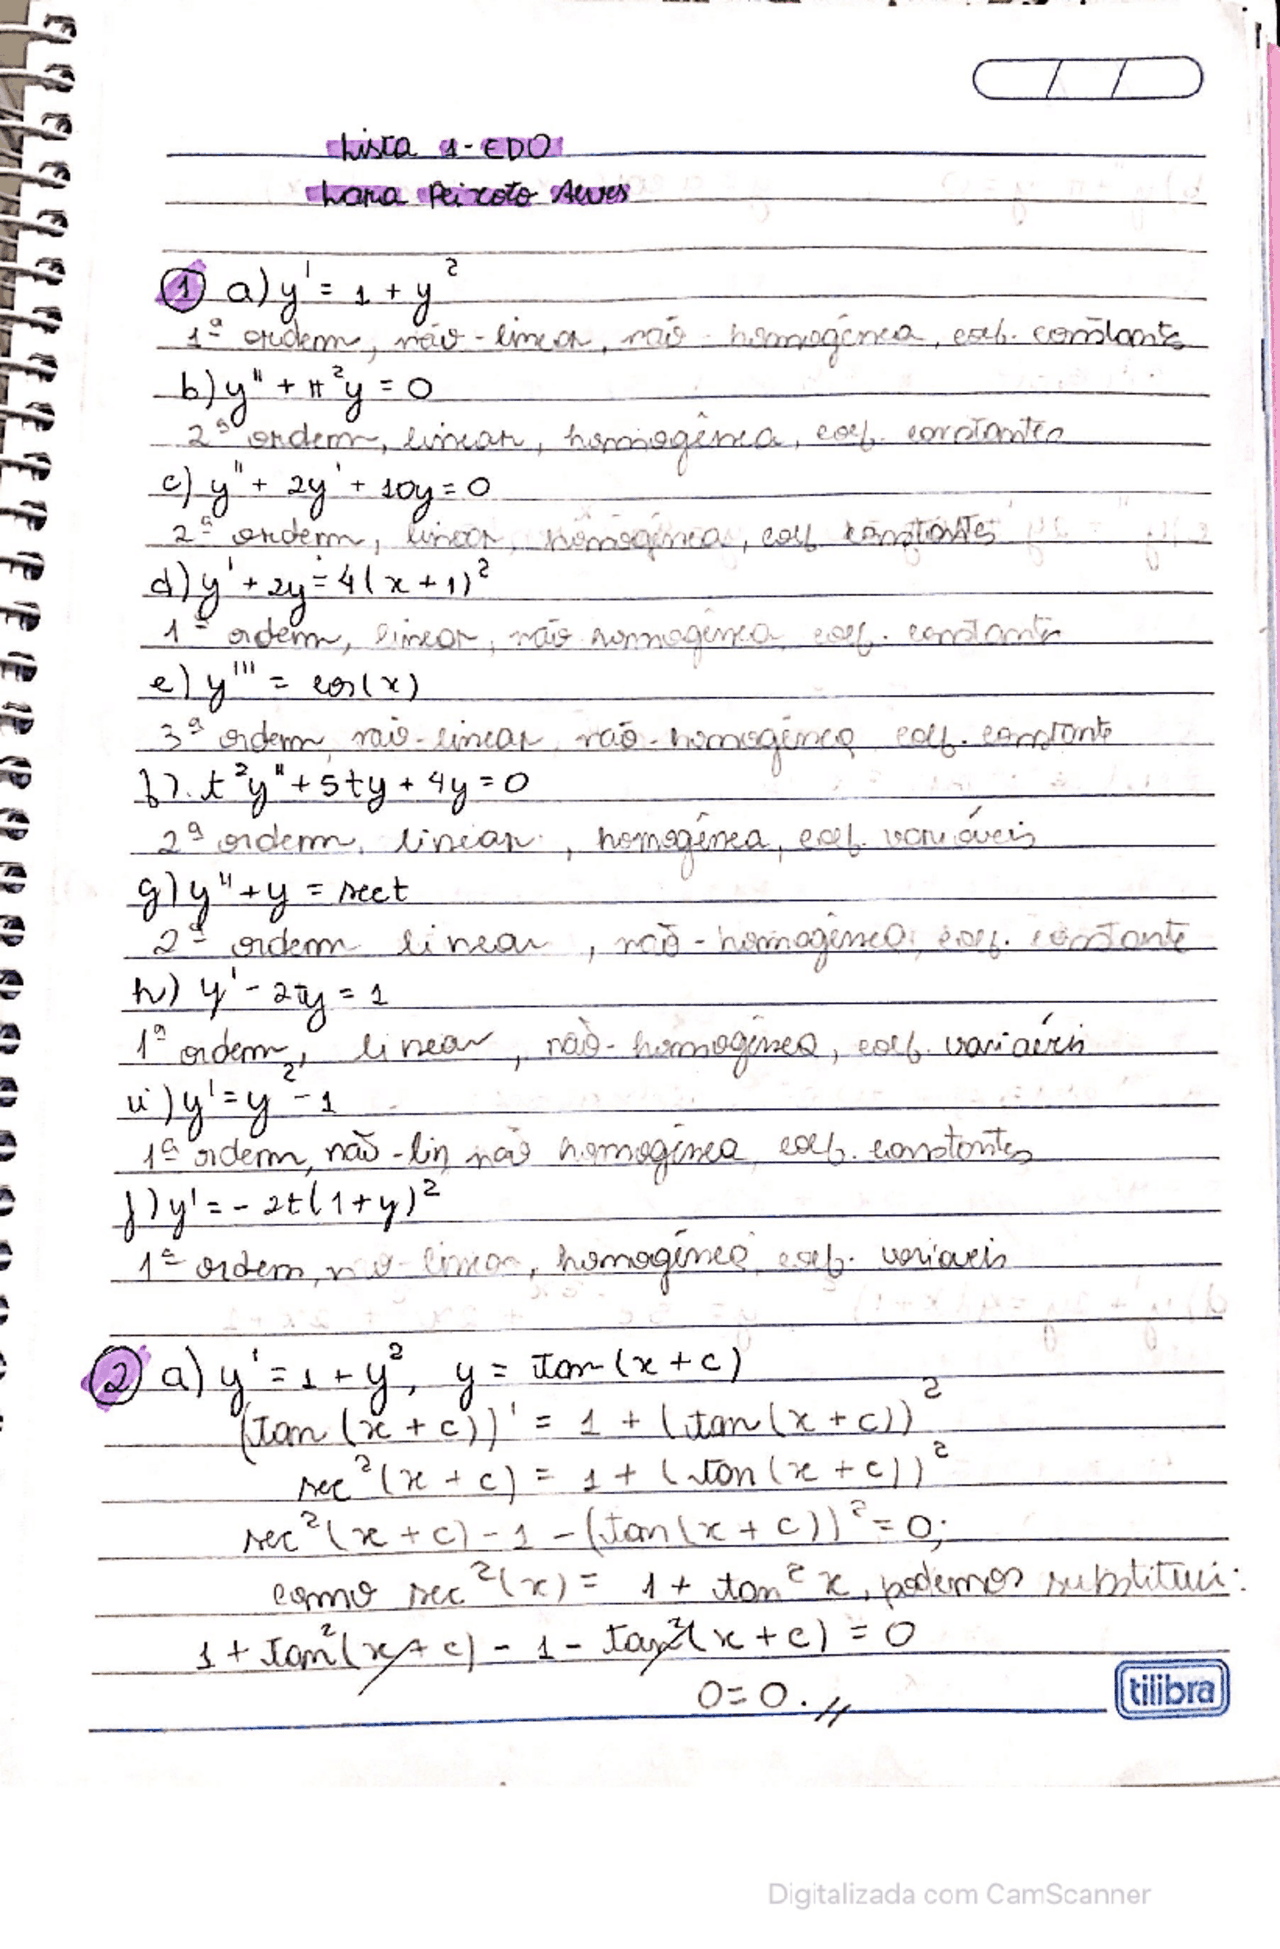 Lista 1 - EDO
Lara Peixoto Alves
1 a) y' = 1 + y²
1ª ordem, não-linear, não-homogênea, coef. constante
b) y" + π²y = 0
2ª ordem, linear, homogênea, coef. constantes
c) y" + 2y' + 10y = 0
2ª ordem, linear, homogênea, coef. constantes
d) y' + 2y = 4(x + 1)²
1ª ordem, linear, não homogênea, coef. constante
e) y''' = cos(x)
3ª ordem, não-linear, não-homogênea, coef. constante
f). t²y" + 5ty + 4y = 0
2ª ordem, linear, homogênea, coef. variáveis
g) y" + y = sect
2ª ordem linear, não-homogênea, coef. constante
h) y' - 2ty = 1
1ª ordem, linear, não-homogênea, coef. variáveis
i) y' = y² - 1
1ª ordem, não-lin, não homogênea, coef. constantes
j) y' = - 2t(1+y)²
1ª ordem, não-linear, homogênea, coef. variáveis
2 a) y' = 1 + y², y = tan(x + c)
(tan (x + c))' = 1 + (tan(x + c))²
sec²(x + c) = 1 + (tan(x + c))²
sec²(x + c) - 1 - (tan(x + c))² = 0;
como sec²(x) = 1 + tan² x, podemos substituir:
1 + tan²(x + c) - 1 - tan²(x + c) = 0
0 = 0. //
tilibra
Digitalizada com CamScanner